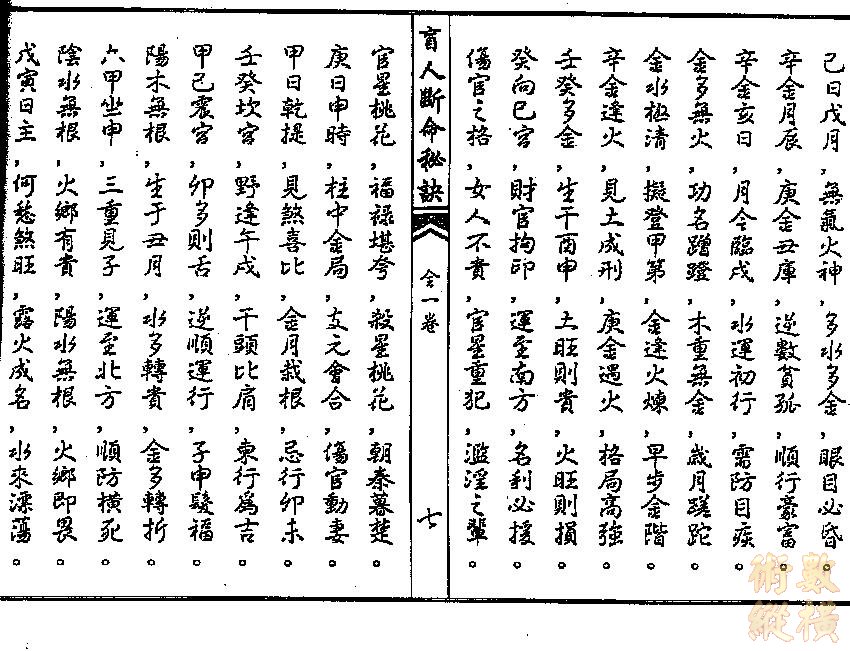 己日戊月,無氣火神,多水多金,眼目必昏。
辛金月辰,庚金丑庫,逆數貧孤,順行豪富。
辛金亥日,月令臨戌,水運初行,需防目疾。
金多無火,功名蹭蹬,木重無金,歲月蹉跎。
金水極清,擬登甲第,金逢火煉,早步金階。
辛金逢火,見土成刑,庚金遇火,格局高強。
壬癸多金,生于酉申,土旺則貴,火旺則損。
癸向巳宮,財官拘印,運至南方,名利必援。
傷官之格,女人不貴,官星重犯,濫淫之輩。
盲人斷命秘訣
全一卷
七
官星桃花,福祿堪夸,殺星桃花,朝秦暮楚。
庚日申時,柱中金局,支元會合,傷官動妻。
甲日乾提,見煞喜比,金月栽根,忌行卯未。
壬癸坎宮,野逢午戌,干頭比肩,東行為吉。
甲己震宮,卯多則舌,逆順運行,子申發福。
陽木無根,生于丑月,水多轉貴,金多轉折。
六甲坐申,三重見子,運至北方,順防橫死。
陰水無根,火鄉有貴,陽水無根,火鄉即畏。
戊寅日主,何愁煞旺,露火成名,水來漂蕩。
數橫
術縱